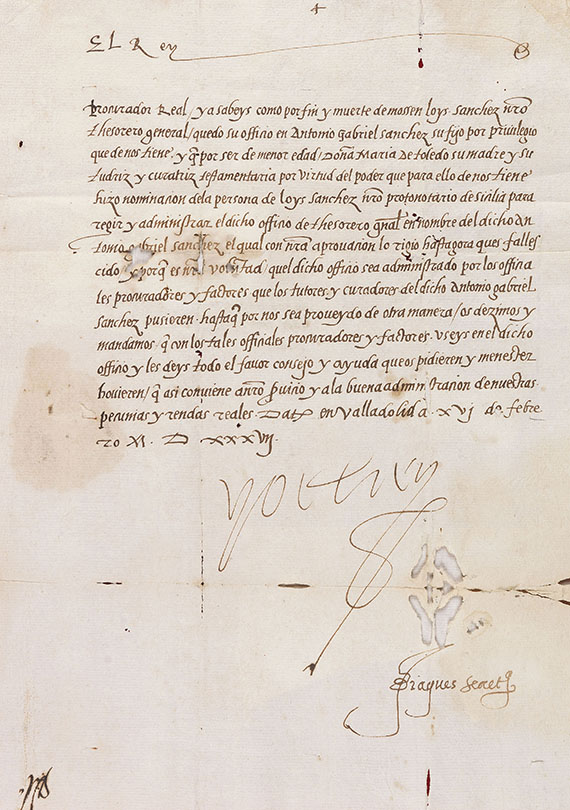 El Rey
Procurador Real / ya sabeys como por fin y muerte de mossen loys sanchez nr̃o
thesorero general / quedo su officio en Antonio gabriel sanchez su fijo por privilegio
que de nos tiene, y q̃ por ser de menor edad / Doña Maria de toledo su madre y su
tudriz y curatriz testamentaria por virtud del poder que para ello de nos tiene
hizo nominacion dela persona de loys sanchez nr̃o prothonotario de sicilia para
regir y administrar el dicho officio de thesorero gñal en nombre del dicho An
tonio gabriel sanchez el qual con nr̃a aprovacion lo rigio hast agora que falles
cido y porq̃ es nr̃a voluntad quel dicho officio sea administrado por los officia
les procuradores y factores que los tutores y curadores del dicho Antonio gabriel
sanchez pusieren hastaq̃ por nos sea proveydo de otra manera / os dezimos y
mandamos q̃ con los tales officiales procuradores y factores useys en el dicho
officio y les deys todo el favor consejo y ayuda que os pidieren y menester
hovieren / q̃ asi conviene a nr̃o servicio y a la buena administracion de nuestras
pecunias y rendas reales. Dat̃ en Valladolid a XVI de febre
ro M D XXXVII.
yo el rey
secret